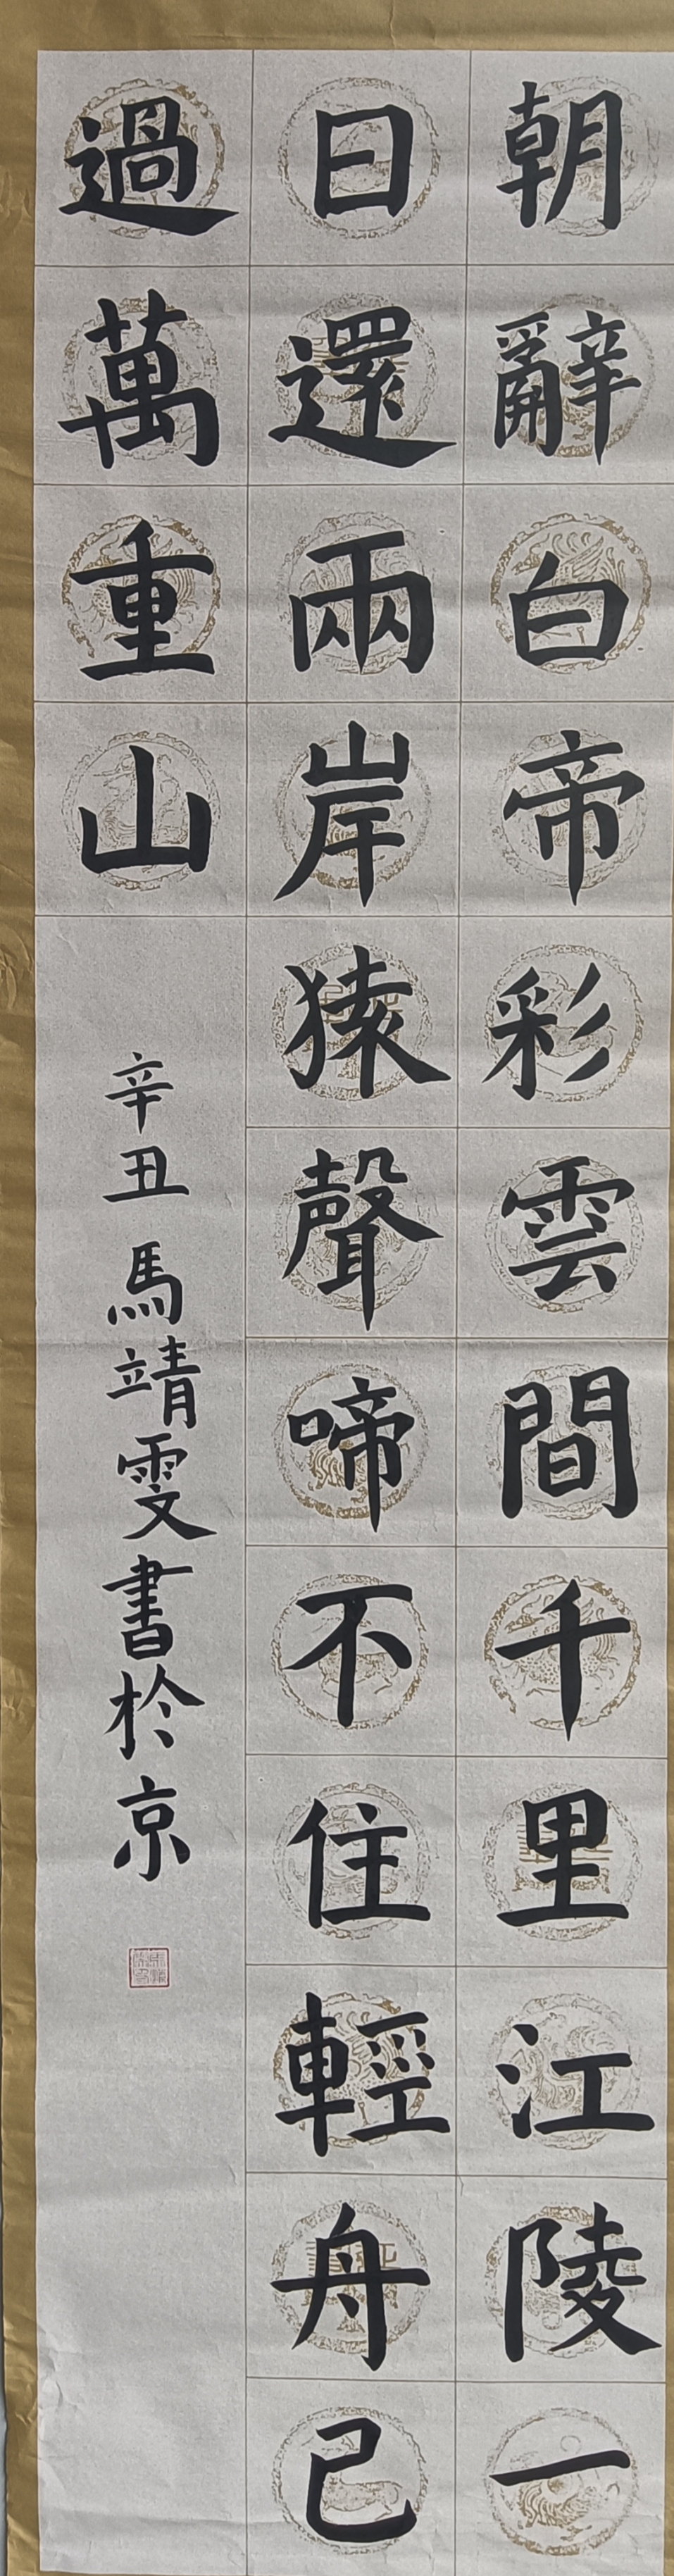 朝辭白帝彩雲間千里江陵一
日還兩岸猿聲啼不住輕舟已
過萬重山
辛丑馬靖雯書於京